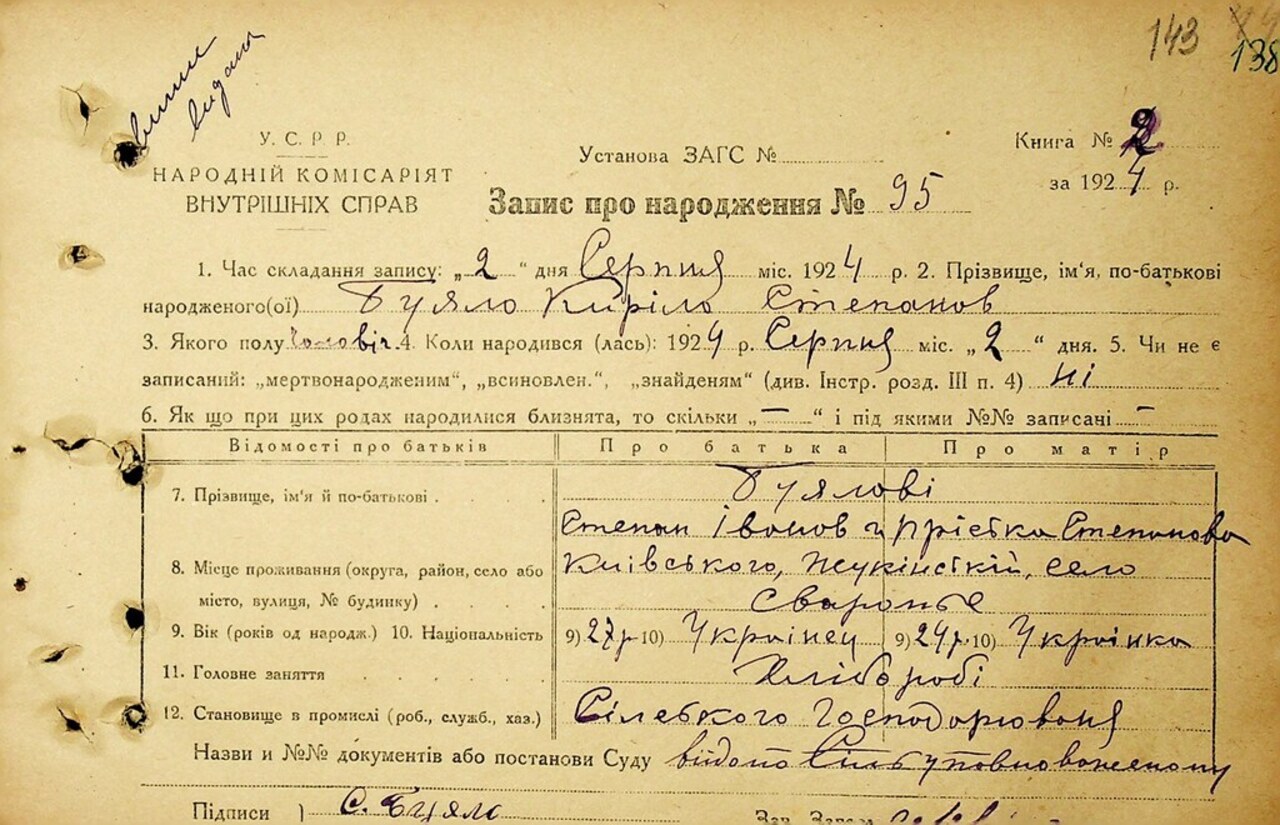 143 44
138
видана
У. С. Р. Р.
НАРОДНІЙ КОМІСАРІЯТ
ВНУТРІШНІХ СПРАВ
Установа ЗАГС №
Книга № 2
за 1924 р.
Запис про народження № 95
1. Час складання запису: „2“ дня Серпня міс. 1924 р. 2. Прізвище, ім'я, по-батькові
народженого(ої) Буяло Киріло Степанов
3. Якого полу чоловіч. 4. Коли народився (лась): 1924 р. Серпня міс. „2“ дня. 5. Чи не є
записаний: „мертвонародженим“, „всиновлен.“, „знайденям“ (див. Інстр. розд. III п. 4) ні
6. Як що при цих родах народилися близнята, то скільки „—“ і під якими №№ записані —
Відомості про батьків Про батька Про матір
7. Прізвище, ім'я й по-батькові . . . . Буялові
Степан Іванов и Пріська Степанова
8. Місце проживання (округа, район, село або Київського, Жукінській, село
місто, вулиця, № будинку) . . . . Сваромьє
9. Вік (років од народж.) 10. Національність 9) 27 р 10) Українец 9) 24 р. 10) Українка
11. Головне заняття . . . . . Хліборобі
12. Становище в промислі (роб., служб., хаз.) Сілського Господорювоня
Назви и №№ документів або постанови Суду видано Сільуповновоженому
Підписи С. Буяло